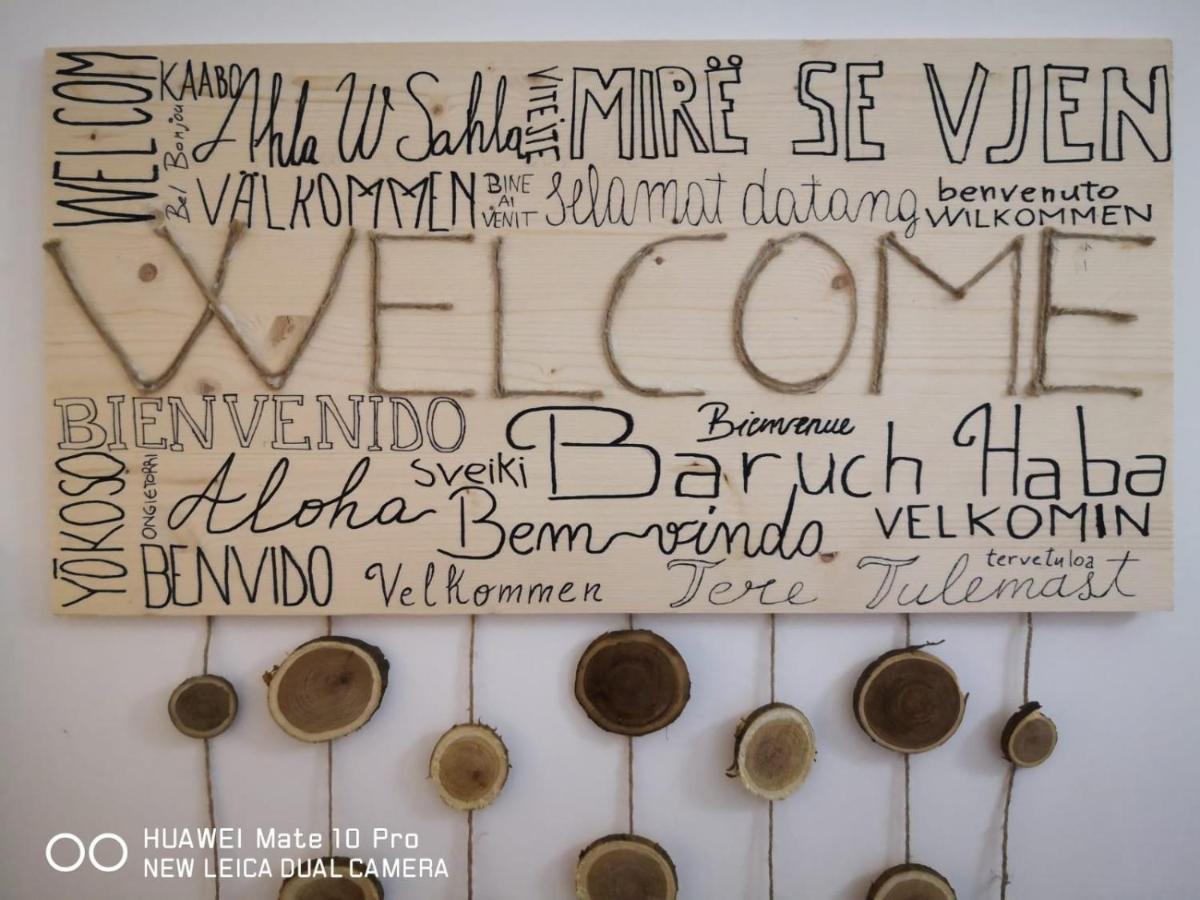 WELCOM
KAABO
Bel Bonjou
Ahla W Sahla
MIRË SE VJEN
VÄLKOMMEN
BINE
AI
VENIT
Selamat datang
benvenuto
WILKOMMEN
WELCOME
BIENVENIDO
Bienvenue
Baruch Haba
YŌKOSO
ONGIETORRI
Aloha
sveiki
Bem-vindo
VELKOMIN
BENVIDO
Velkommen
Tere Tulemast
tervetuloa
HUAWEI Mate 10 Pro
NEW LEICA DUAL CAMERA